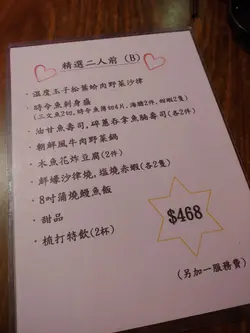 精選二人前 (B)
· 溫度玉子松葉蛤肉野菜沙律
· 時令魚刺身盛
(三文魚2切, 時令魚薄切4片, 海膽2件, 甜蝦2隻)
· 油甘魚壽司, 碎蔥吞拿魚腩壽司(各2件)
· 朝鮮風牛肉野菜鍋
· 木魚花炸豆腐(2件)
· 鮮蠔沙律燒, 塩燒赤蝦(各2隻)
· 8吋蒲燒鰻魚飯
· 甜品
· 梳打特飲(2杯)
$468
(另加一服務費)